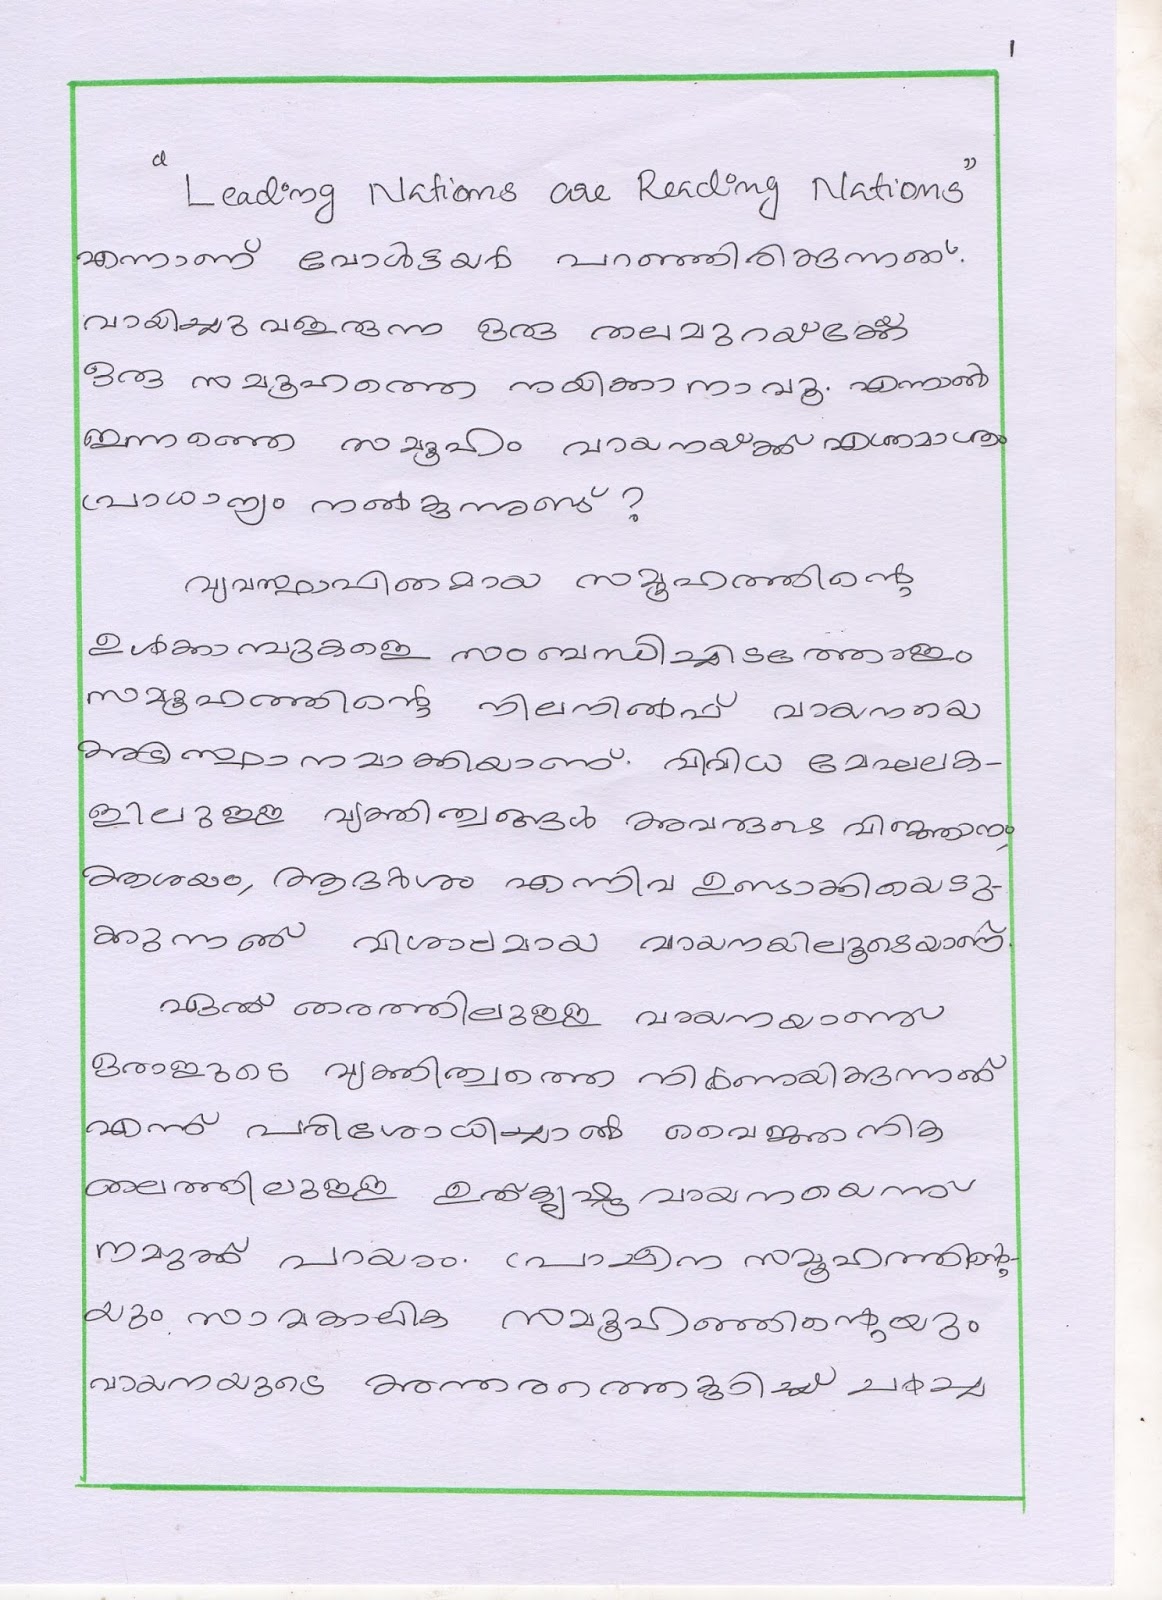 1
"Leading Nations are Reading Nations"
എന്നാണ് വോൾട്ടയർ പറഞ്ഞിരിക്കുന്നത്.
വായിച്ചുവളരുന്ന ഒരു തലമുറയ്ക്കേ
ഒരു സമൂഹത്തെ നയിക്കാനാവൂ. എന്നാൽ
ഇന്നത്തെ സമൂഹം വായനയ്ക്ക് എത്രമാത്രം
പ്രാധാന്യം നൽകുന്നുണ്ട് ?
വ്യവസ്ഥാപിതമായ സമൂഹത്തിന്റെ
ഉൾക്കാമ്പുകളെ സംബന്ധിച്ചിടത്തോളം
സമൂഹത്തിന്റെ നിലനിൽപ് വായനയെ
അടിസ്ഥാനമാക്കിയാണ്. വിവിധ മേഖലക-
ളിലുള്ള വ്യക്തിത്വങ്ങൾ അവരുടെ വിജ്ഞാനം,
ആശയം, ആദർശം എന്നിവ ഉണ്ടാക്കിയെടു-
ക്കുന്നത് വിശാലമായ വായനയിലൂടെയാണ്.
ഏത് തരത്തിലുള്ള വായനയാണ്
ഒരാളുടെ വ്യക്തിത്വത്തെ നിർണയിക്കുന്നത്
എന്ന് പരിശോധിച്ചാൽ വൈജ്ഞാനിക
തലത്തിലുള്ള ഉത്കൃഷ്ട വായനയെന്ന്
നമുക്ക് പറയാം. പ്രാചീന സമൂഹത്തിന്റെ-
യും സമകാലിക സമൂഹത്തിന്റെയും
വായനയുടെ അന്തരത്തെകുറിച്ച് ചർച്ച